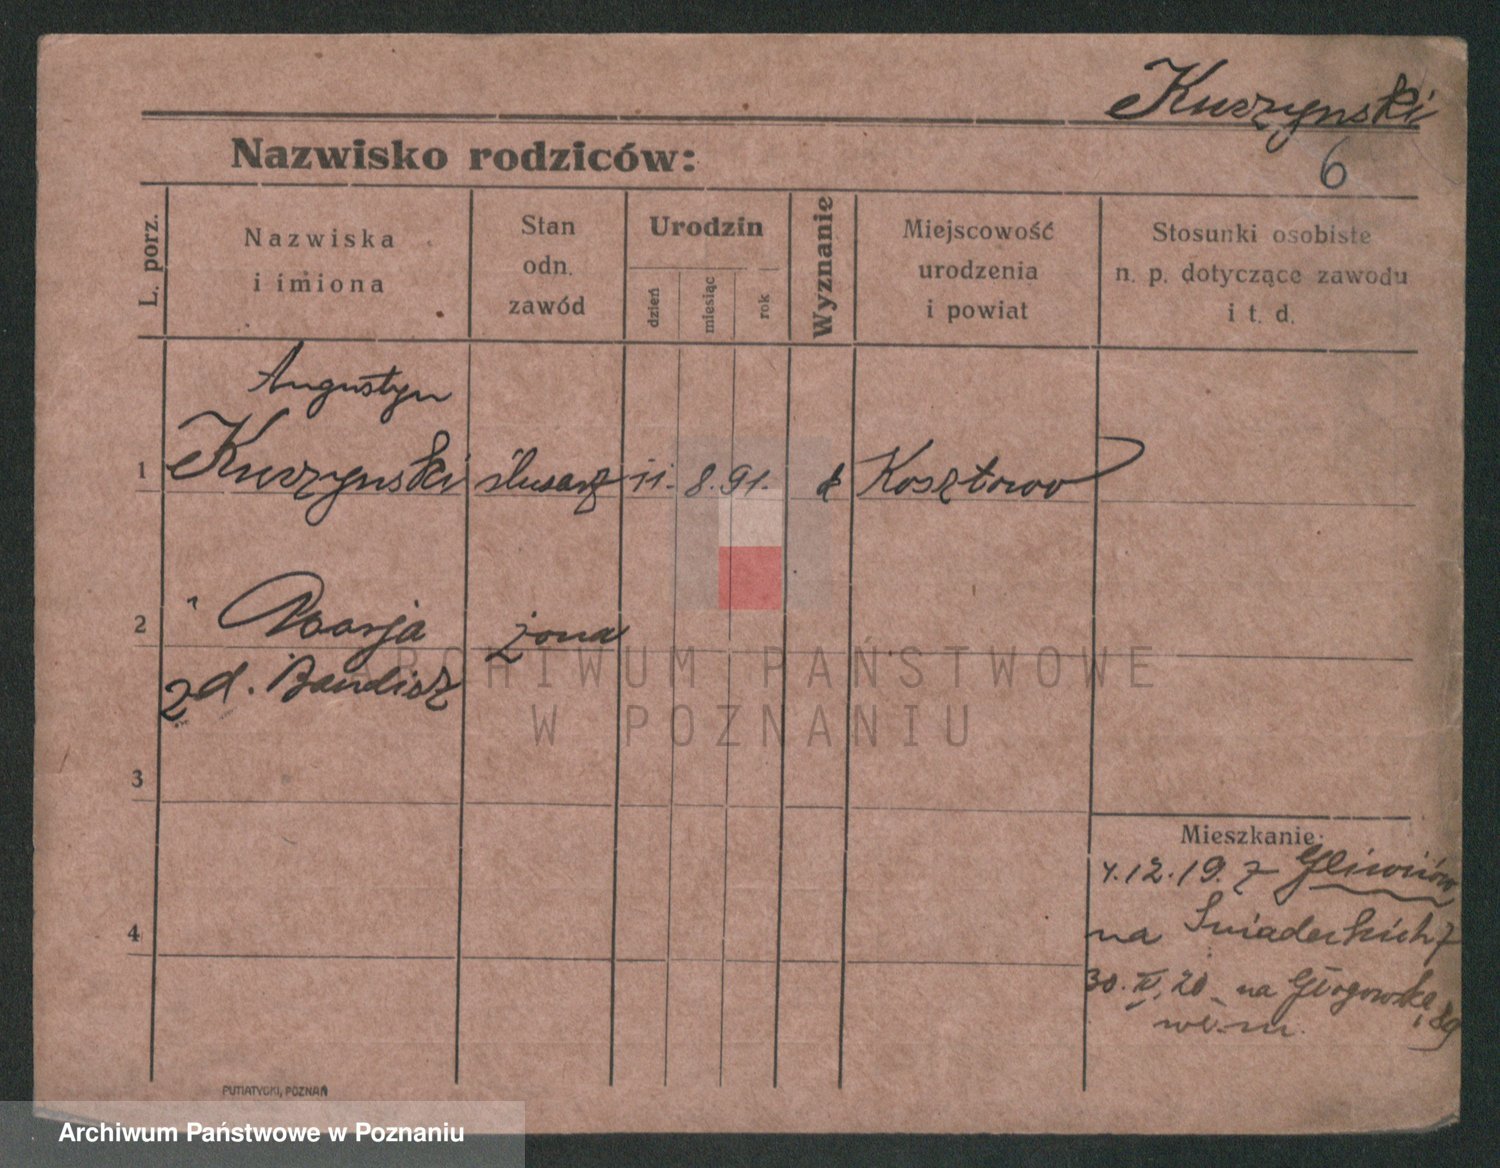 Kuszynski
6
Nazwisko rodziców:
L. porz.
Nazwiska
i imiona
Stan
odn.
zawód
Urodzin
dzień
miesiąc
rok
Wyznanie
Miejscowość
urodzenia
i powiat
Stosunki osobiste
n. p. dotyczące zawodu
i t. d.
Augustyn
1 Kuszynski ślusarz 11. 8. 91. k Kosztowo
2 " Marja żona
zd. Bandisz
3
Mieszkanie:
4.12.19. z Gliwiców
na Sniadeckich 7
4
30. IV. 20 na Głogowską 89
PUTIATYCKI, POZNAŃ
ARCHIWUM PAŃSTWOWE
W POZNANIU
Archiwum Państwowe w Poznaniu